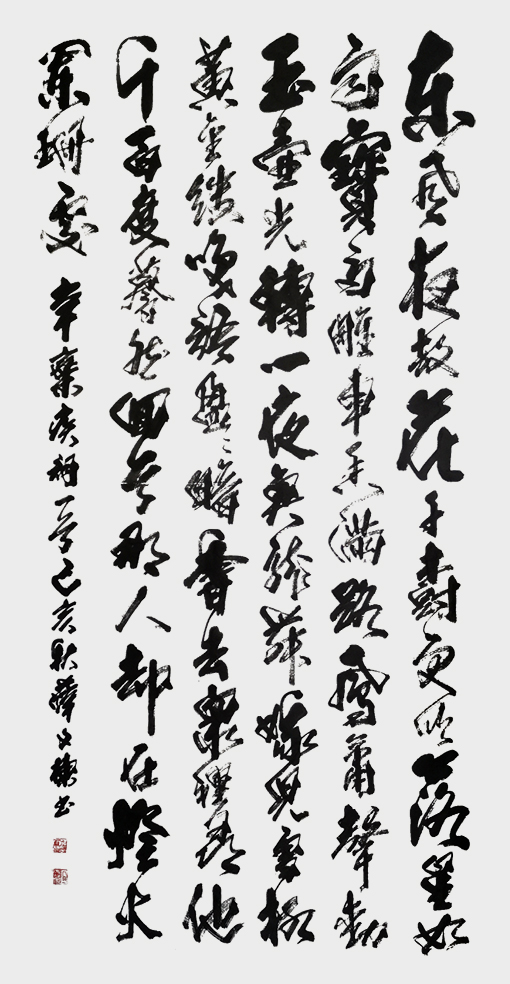 東風夜放花千樹更吹落星如
雨寶馬雕車香滿路鳳簫聲動
玉壺光轉一夜魚龍舞蛾兒雪柳
黃金縷笑語盈々暗香去衆裡尋他
千百度驀然回首那人却在燈火
闌珊處 辛棄疾詞一首己亥秋薛文書